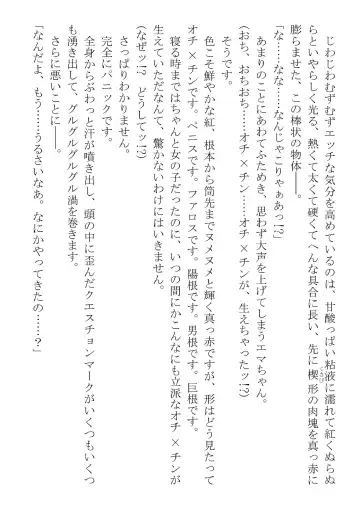 じわじわむずむずエッチな気分を高めているのは、甘酸っぱい粘液に濡れて紅くぬらぬ
らといやらしく光る、熱くて太くて硬くてへんな具合に長い、先に楔形の肉塊を真っ赤に
膨らませた、この棒状の物体――。
「な……なな……なんじゃこりゃぁあっ!?」
あまりのことにあわてふためき、思わず大声を上げてしまうエマちゃん。
(おち、おちおち……オチ×チン……オチ×チンが、生えちゃったッ!?)
そうです。
色こそ鮮やかな紅、根本から筒先までヌメヌメと輝く真っ赤ですが、形はどう見たって
オチ×チンです。ペニスです。ファロスです。陽根です。男根です。巨根です。
寝る時まではちゃんと女の子だったのに、いつの間にかこんなにも立派なオチ×チンが
生えていただなんて、驚かないわけにはいきません。
(なぜッ!? どうしてッ!?)
さっぱりわかりません。
完全にパニックです。
全身からぶわっと汗が噴き出し、頭の中に歪んだクエスチョンマークがいくつもいくつ
も湧き出して、グルグルグルグル渦を巻きます。
さらに悪いことに――。
「なんだよ、もう……うるさいなあ。なにかやってきたの……?」